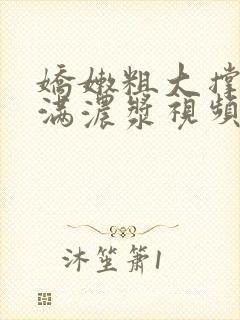 嬌嫩粗大撐
滿濃漿視頻
沐笙簫1